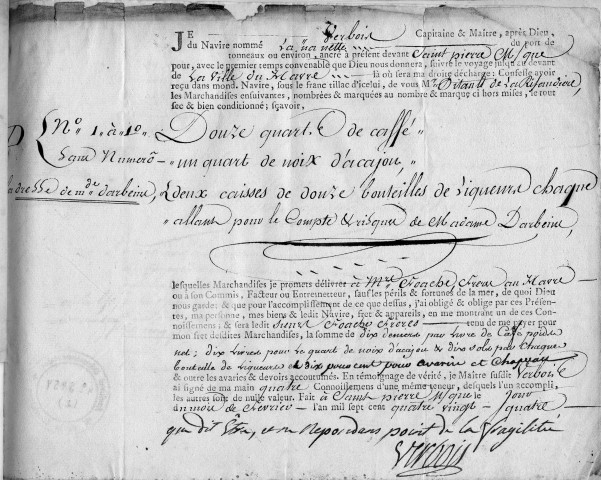 JE Verbois Capitaine & Maître, après Dieu,
du Navire nommé La Nanette du port de
tonneaux ou environ, ancré à présent devant Saint pierre M.que
pour, avec le premier temps convenable que Dieu nous donnera, suivre le voyage jusqu'au devant
de La Ville du Havre là où sera ma droite décharge : Confesse avoir
reçu dans mond. Navire, sous le franc tillac d'icelui, de vous Mr.
les Marchandises ensuivantes, nombrées & marquées au nombre & marque ci hors mises, le tout
sec & bien conditionné ; sçavoir,
D N.º 1. à 1º. Douze quart. de caffé "
Sans Numero — un quart de noix d'acajou,
ladresse de mde. darbeine, & deux caisses de douze bouteilles de liqueurs chaque
" allant pour le Compte & risque de Madame Darbeine,
lesquelles Marchandises je promets délivrer à Mrs. Foache Freres au Havre —
ou à son Commis, Facteur ou Entremetteur, sauf les périls & fortunes de la mer, de quoi Dieu
nous garde : & que pour l'accomplissement de ce que dessus, j'ai obligé & oblige par ces Présen-
tes, ma personne, mes biens & ledit Navire, fret & appareils, en me montrant un de ces Con-
noissemens ; & sera ledit Sieurs Foache Freres — tenu de me payer pour
mon fret desdites Marchandises, la somme de dix deniers par livre de Caffé poids
net ; dix livres pour le quart de noix d'acajou & dix sols par Chaque
bouteille de liqueurs & dix pour cent pour avarie et Chapeau
& outre les avaries & devoirs accoutumés. En témoignage de vérité, je Maître susdit Verbois
ai signé de ma main quatre Connoissemens d'une même teneur, desquels l'un accompli,
les autres sont de nulle valeur. Fait à Saint pierre M.que le jour
du mois de Fevrier — l'an mil sept cent quatre vingt - quatre —
que dit Etre, et ne Repondans point de la Fragilitée
Verbois